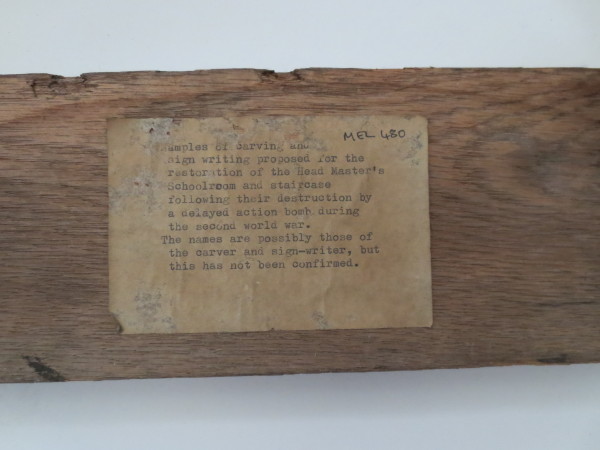 MEL 480
amples of carving and
sign writing proposed for the
restoration of the Head Master's
Schoolroom and staircase
following their destruction by
a delayed action bomb during
the second world war.
The names are possibly those of
the carver and sign-writer, but
this has not been confirmed.